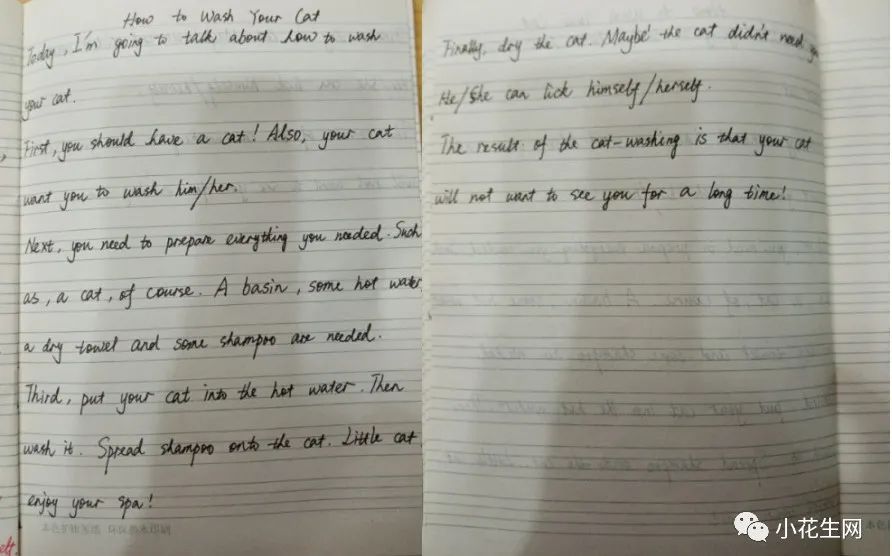 How to Wash Your Cat
Today, I'm going to talk about how to wash
your cat.
First, you should have a cat! Also, your cat
want you to wash him/her.
Next, you need to prepare everything you needed. Such
as, a cat, of course. A basin, some hot water,
a dry towel and some shampoo are needed.
Third, put your cat into the hot water. Then
wash it. Spread shampoo onto the cat. Little cat
enjoy your spa!
Finally, dry the cat. Maybe the cat didn't need
He/She can lick himself/herself.
The result of the cat-washing is that your cat
will not want to see you for a long time!
小花生网